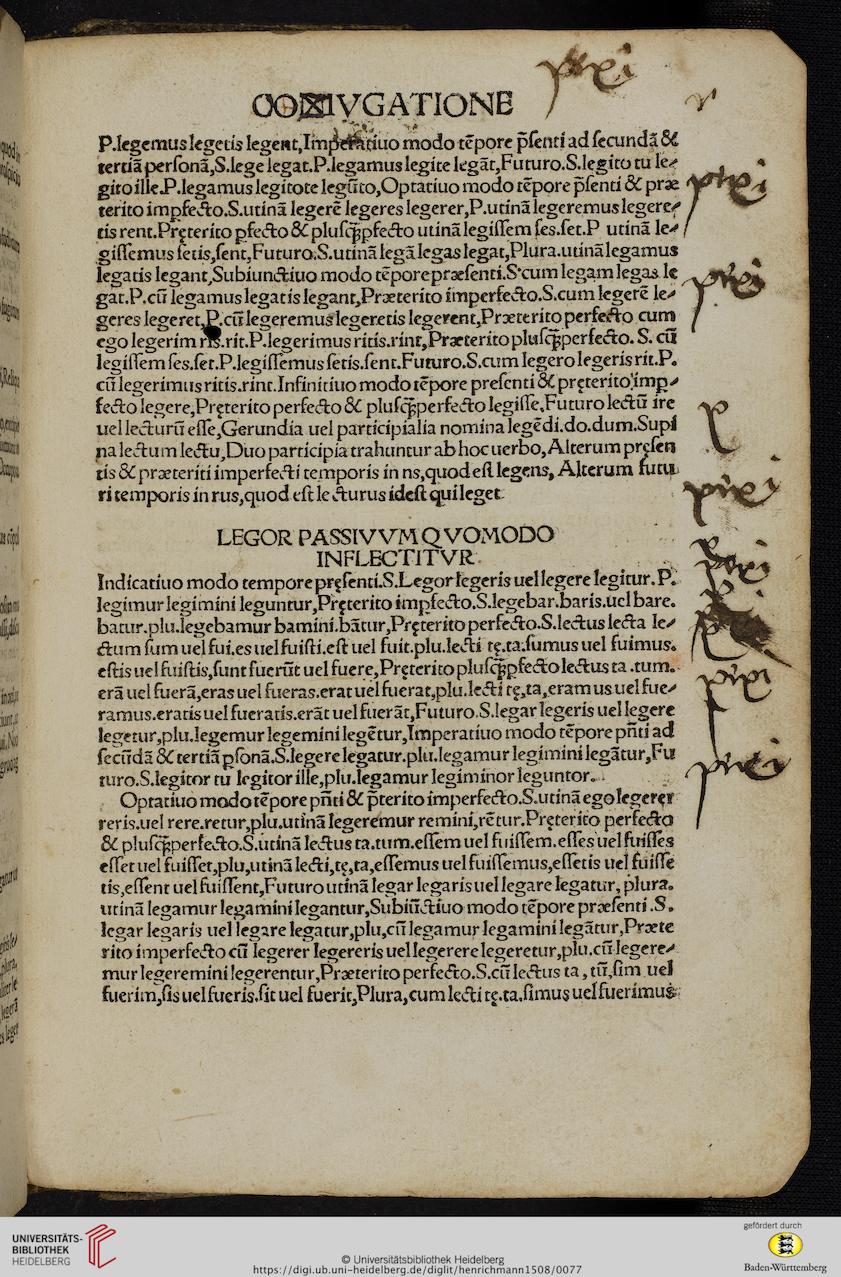 CONIVGATIONE
P.legemus legetis legent,Imperatiuo modo tēpore p̄senti ad secundã &
tertiã personã,S.lege legat.P.legamus legite legãt,Futuro.S.legito tu le⸗
gito ille.P.legamus legitote legūto,Optatiuo modo tēpore p̄senti & præ
terito impfecto.S.utinã legerē legeres legerer,P.utinã legeremus legere⸗
tis rent.Pręterito pfecto & plusqꝫpfecto utinã legissem ses.set.P utinã le⸗
gissemus setis,sent,Futuro.S.utinã legã legas legat,Plura.utinã legamus
legatis legant,Subiunctiuo modo tēpore præsenti.S.cum legam legas le
gat.P.cū legamus legatis legant,Præterito imperfecto.S.cum legerē le⸗
geres legeret,P.cū legeremus legeretis legerent,Præterito perfecto cum
ego legerim ris.rit.P.legerimus ritis.rint,Præterito plusqꝫperfecto. S. cū
legissem ses.set.P.legissemus setis.sent.Futuro.S.cum legero legeris rit.P.
cū legerimus ritis.rint.Infinitiuo modo tēpore presenti & pręterito imp⸗
fecto legere,Pręterito perfecto & plusqꝫperfecto legisse.Futuro lectū ire
uel lecturū esse,Gerundia uel participialia nomina legēdi.do.dum.Supi
na lectum lectu,Duo participia trahuntur ab hoc uerbo,Alterum pręsen
tis & præteriti imperfecti temporis in ns,quod est legens, Alterum futu
ri temporis in rus,quod est le cturus idest qui leget.
LEGOR PASSIVVM QVOMODO
INFLECTITVR.
Indicatiuo modo tempore pręsenti.S.Legor legeris uel legere legitur.P.
legimur legimini leguntur,Pręterito impfecto.S.legebar.baris.uel bare.
batur.plu.legebamur bamini.bãtur,Pręterito perfecto.S.lectus lecta le⸗
ctum sum uel fui.es uel fuisti.est uel fuit.plu.lecti tę.ta.sumus uel fuimus.
estis uel fuistis,sunt fuerūt uel fuere,Pręterito plusqꝫpfecto lectus ta .tum.
erã uel fuerã,eras uel fueras.erat uel fuerat,plu.lecti tę,ta,eram us uel fue⸗
ramus.eratis uel fueratis.erãt uel fuerãt,Futuro.S.legar legeris uel legere
legetur,plu.legemur legemini legētur,Imperatiuo modo tēpore pñti ad
secūdã & tertiã psonã.S.legere legatur.plu.legamur legimini legãtur,Fu
turo.S.legitor tu legitor ille,plu.legamur legiminor leguntor.
Optatiuo modo tēpore pñti & p̄terito imperfecto.S.utinã ego legerer
reris.uel rere.retur,plu.utinã legeremur remini,rētur.Pręterito perfecto
& plusqꝫperfecto.S.utinã lectus ta.tum.essem uel fuissem.esses uel fuisses
esset uel fuisset,plu,utinã lecti,tę,ta,essemus uel fuissemus,essetis uel fuisse
tis,essent uel fuissent,Futuro utinã legar legaris uel legare legatur, plura.
utinã legamur legamini legantur,Subiūctiuo modo tēpore præsenti .S.
legar legaris uel legare legatur,plu,cū legamur legamini legãtur,Præte
rito imperfecto cū legerer legereris uel legerere legeretur,plu.cū legere⸗
mur legeremini legerentur,Præterito perfecto.S.cū lectus ta , tū,sim uel
fuerim,sis uel fueris.sit uel fuerit,Plura,cum lecti tę.ta.simus uel fuerimus
UNIVERSITÄTS-
BIBLIOTHEK
HEIDELBERG
© Universitätsbibliothek Heidelberg
https://digi.ub.uni-heidelberg.de/diglit/henrichmann1508/0077
gefördert durch
Baden-Württemberg